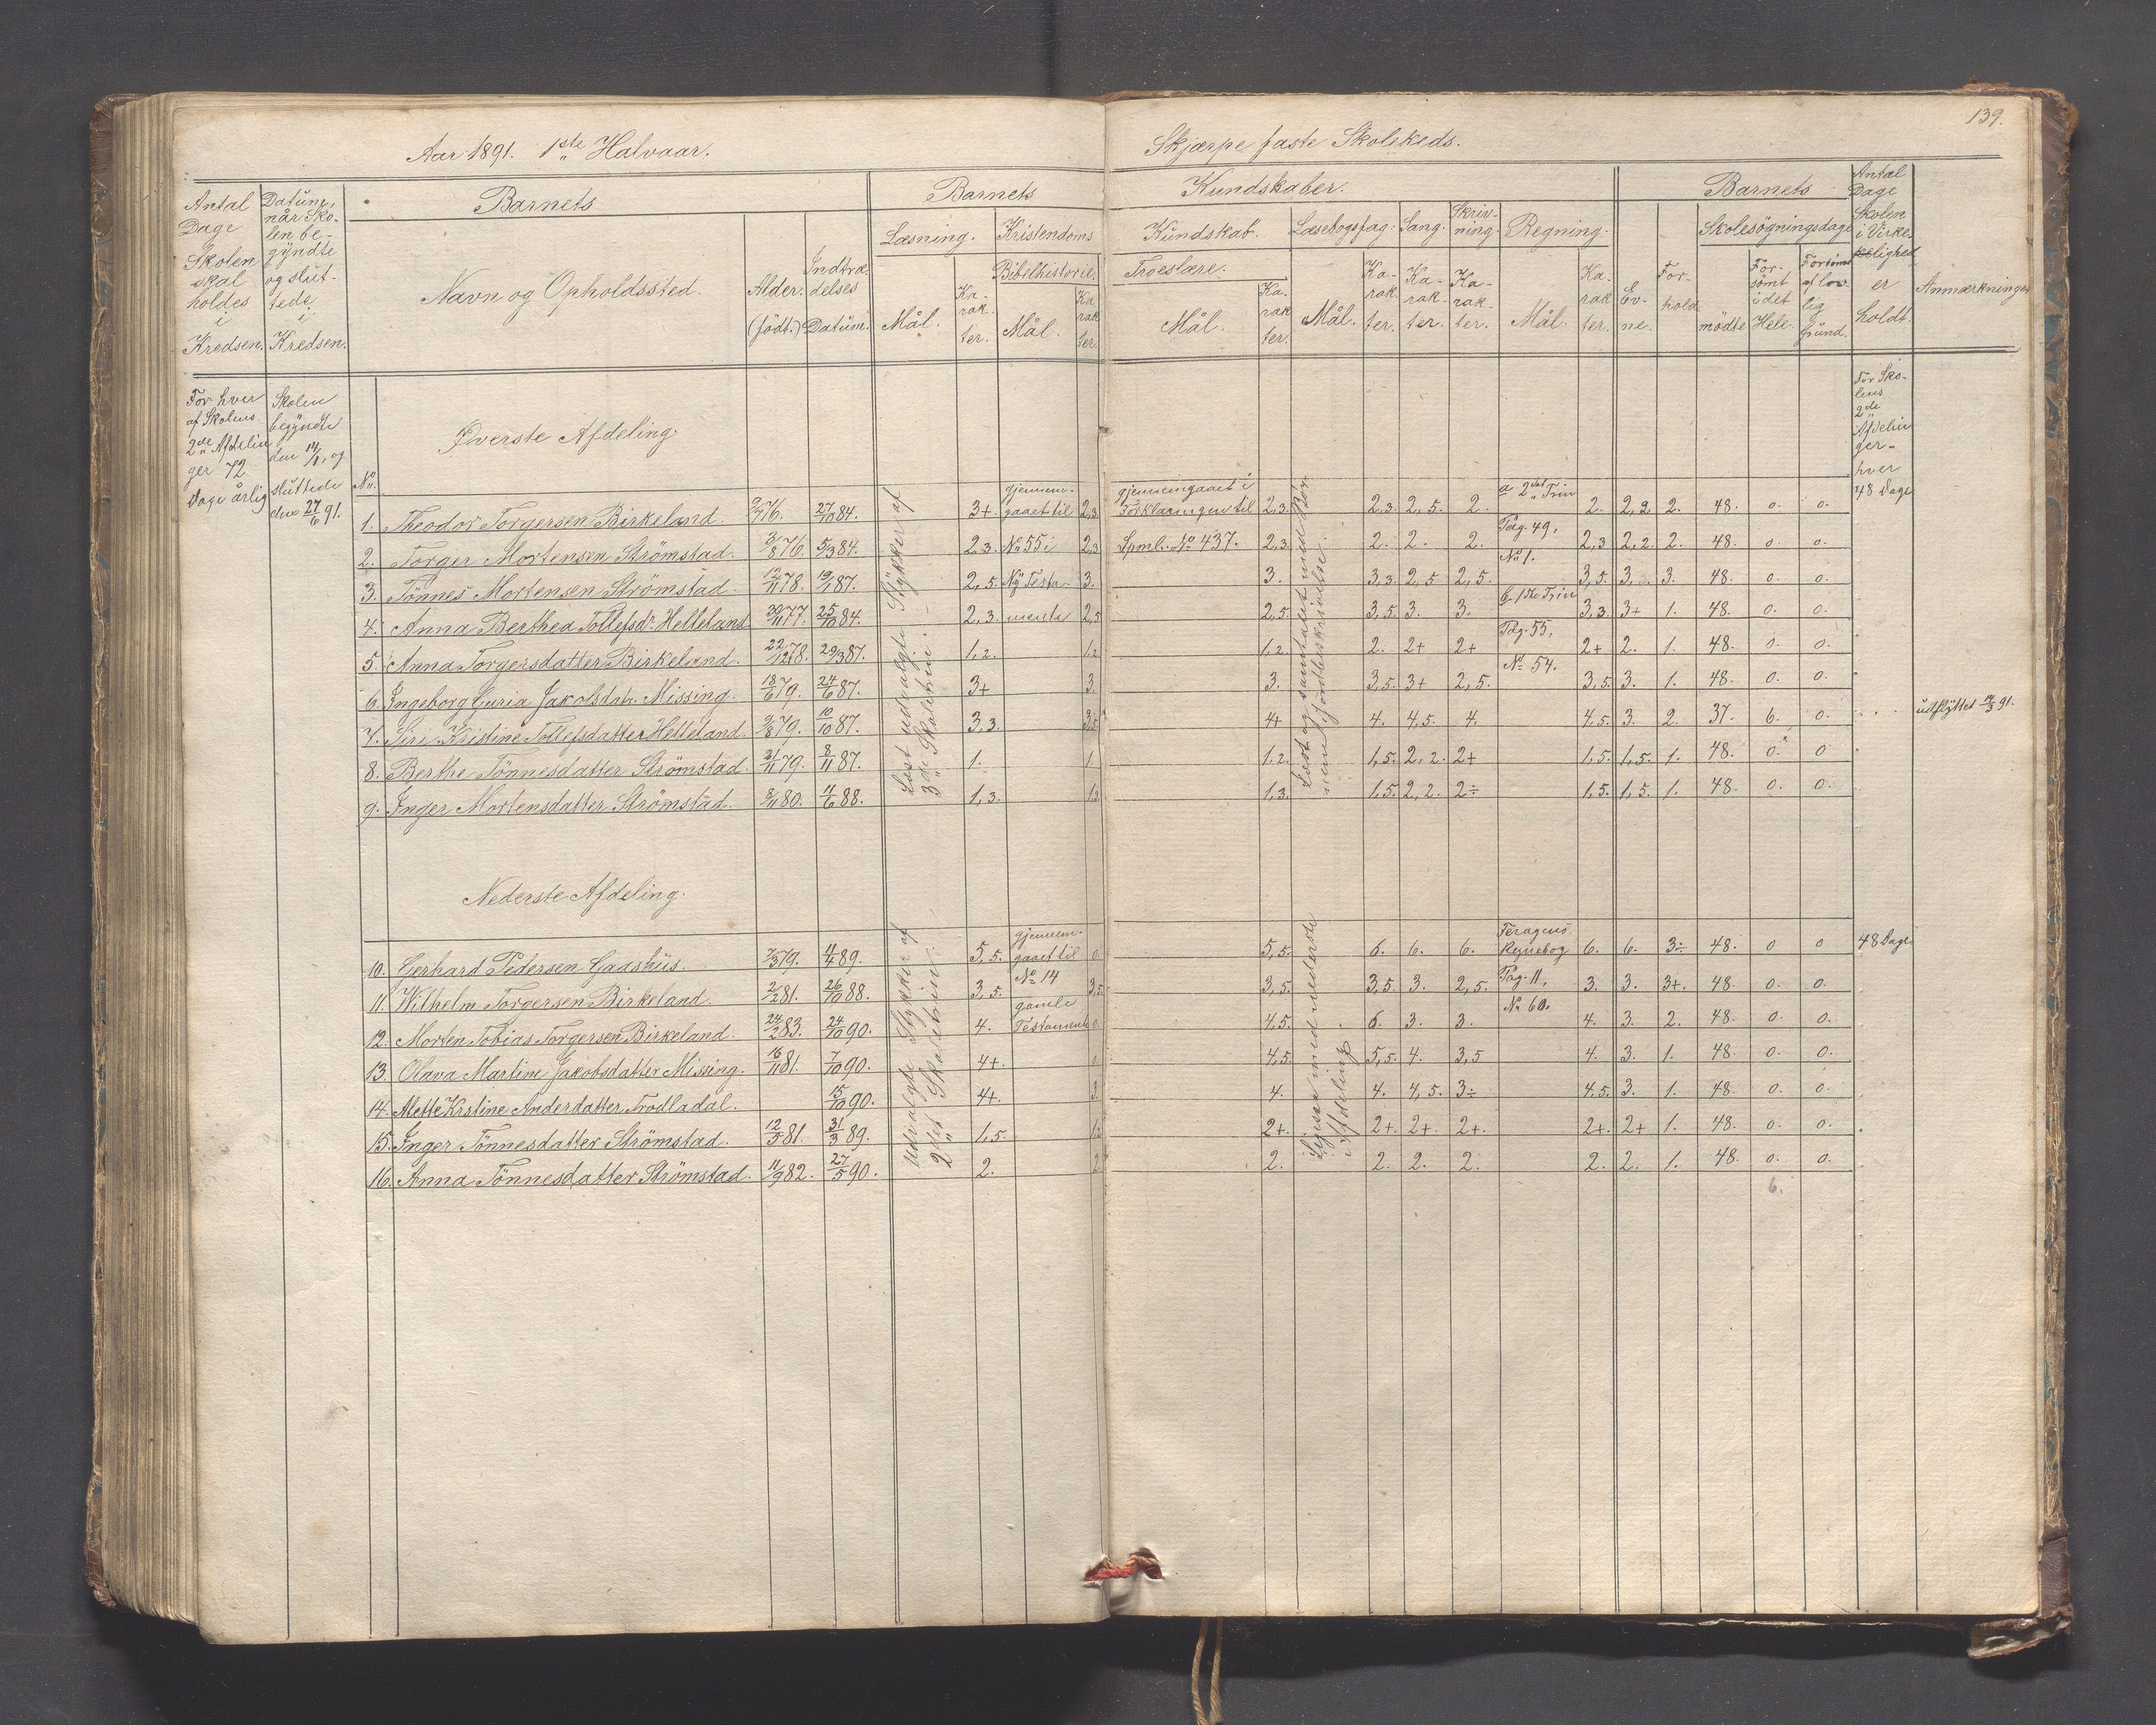 139.
Aar 1891. 1ste Halvaar.
Skjærpe faste Skolekreds.
Antal Dage Skolen skal holdes i Kredsen.
Datum, når Skolen begyndte og sluttede i Kredsen.
Barnets
Navn og Opholdssted.
Alder. (född.)
Indtrædelses Datum.
Barnets
Kundskaber.
Læsning.
Mål.
Karakter.
Kristendoms
Kundskab.
Bibelhistorie.
Mål.
Karakter.
Troeslære.
Mål.
Karakter.
Læsebogsfag.
Mål.
Karakter.
Sang.
Karakter.
Skrivning.
Karakter.
Regning.
Mål.
Karakter.
Barnets
Evne.
Forhold
Skolesögningsdage
mödte
Forsömt i det Hele.
Forsömt af lovlig Grund.
Antal Dage Skolen i Virkelighed er holdt.
Anmærkninger
For hver af Skolens 2de Afdelinger 72 Dage årlig
Skolen begyndte den 14/1, og sluttede den 27/6 91.
For Skolens 2de Afdelinger hver 48 Dage
Øverste Afdeling.
No
Læst udvalgte Stykker af 3de Skoletrin.
gjennemgaaet til No 55 i Ny Testamente
gjennemgaaet i Forklaringen til Spml. No 437.
a 2det Trin Pag. 49, No 1.
b 1ste Trin Pag. 55, No 54.
1. Theodor Torgersen Birkeland. 9/7 76. 27/10 84. 3+. 2,3. 2,3. 2,3. 2,5. 2. 2. 2,2. 2. 48. 0. 0.
2. Torger Mortensen Strömstad. 3/8 76. 5/3 84. 2,3. 2,3 2,3. 2. 2. 2. 2,3 2,2. 2. 48. 0. 0.
3. Tönnes Mortensen Strömstad. 12/11 78. 19/1 87. 2,5. 3. 3. 3,3. 2,5 2,5. 3,5. 3. 3. 48. 0. 0.
4. Anna Berthea Tollefsdr. Helleland 30/11 77. 25/10 84. 2,3. 2,5 2,5. 3,5. 3. 3. 3,3. 3+ 1. 48. 0. 0.
5. Anna Torgersdatter Birkeland. 22/12 78. 29/3 87. 1,2. 1,2 1,2. 2. 2+ 2+ 2+ 2. 1. 48. 0. 0.
6. Ingeborg Guria Jakobsdtr. Missing. 18/6 79. 24/6 87. 3+ 3. 3. 3,5. 3+ 2,5. 3,5. 3. 1. 48. 0. 0.
7. Siri Kristine Tollefsdatter Helleland. 9/8 79. 10/10 87. 3,3. 3,5 4+ 4. 4,5. 4. 4,5. 3. 2. 37. 6. 0. udflyttet 14/3 91.
8. Berthe Tönnesdatter Strömstad. 21/11 79. 8/11 87. 1. 1 1,2. 1,5. 2,2. 2+ 1,5. 1,5. 1. 48. 0. 0
9. Inger Mortensdatter Strömstad. 8/11 80. 11/6 88. 1,3. 1,3 1,3. 1,5. 2,2. 2÷ 1,5. 1,5. 1. 48. 0. 0.
Nederste Afdeling.
udvalgte Stykker af 2det Skoletrin.
gjennemgaaet til No 14 gamle Testamente
Ligesaa med nederste Afdeling
Feragens Regnebog Pag. 11, No 60.
48 Dage
10. Gerhard Pedersen Gaashus. 7/3 79. 11/4 89. 5,5. 0 5,5. 6. 6. 6. 6. 6. 3÷ 48. 0 0
11. Wilhelm Torgersen Birkeland. 2/2 81. 26/10 88. 3,5. 3,5 3,5. 3,5. 3. 2,5. 3. 3. 3+. 48. 0. 0.
12. Morten Tobias Torgersen Birkeland. 24/2 83. 24/10 90. 4. 0 4,5. 6. 3. 3. 4. 3. 2. 48. 0. 0.
13. Olava Martine Jakobsdatter Missing. 16/11 81. 7/10 90. 4+. 0 4,5. 5,5. 4. 3,5 4. 3. 1. 48. 0. 0.
14. Mette Kristine Andersdatter Trodladal. 15/10 90. 4+. 3. 4. 4. 4,5. 3÷ 4,5. 3. 1. 48. 0. 0.
15. Inger Tönnesdatter Strömstad. 12/5 81. 31/3 89. 1,5. 1,2 2+. 2+. 2+. 2+. 2+. 2+ 1. 48. 0. 0.
16. Anna Tönnesdatter Strömstad. 11/9 82. 27/5 90. 2. 2 2. 2. 2. 2. 2. 2. 1. 48. 0. 0.
6.